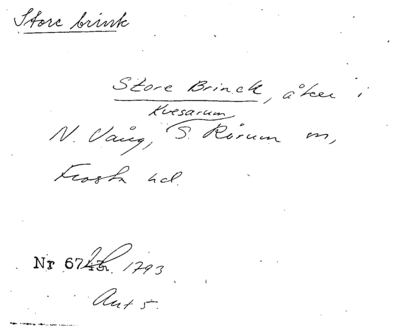 Store brink
Store Brinck, åker i
Kvesarum
N. Vång, S. Rörum sn,
Frosta hd.
Nr 67 1793
Akt 5.